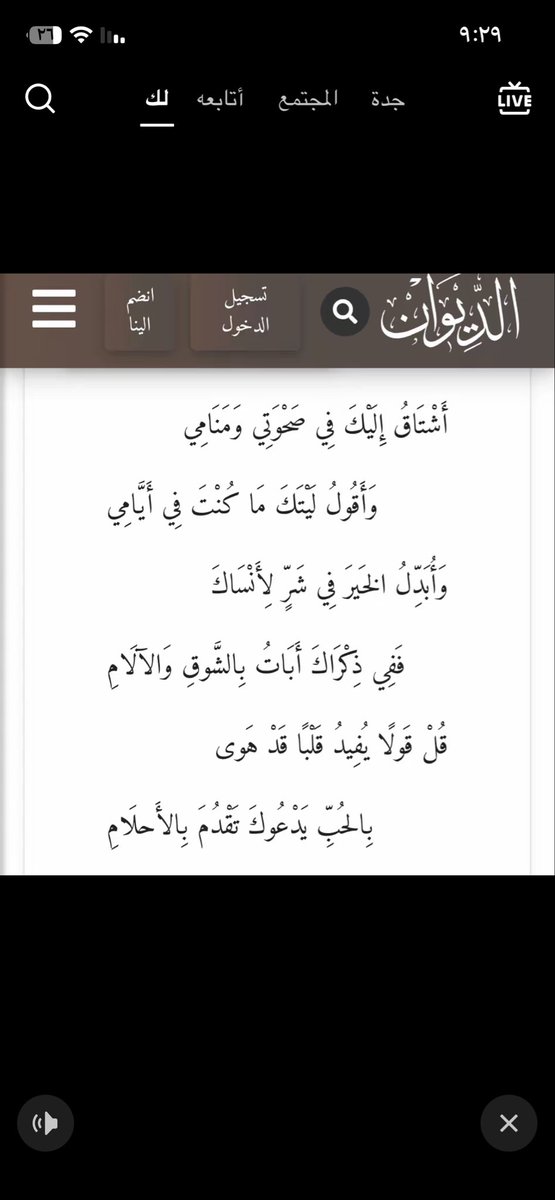 ٩:٢٩
٢٦
LIVE
جدة المجتمع أتابعه لك
الدِّيوَان
تسجيل الدخول
انضم الينا
أَشْتَاقُ إِلَيْكَ فِي صَحْوَتِي وَمَنَامِي
وَأَقُولُ لَيْتَكَ مَا كُنْتَ فِي أَيَّامِي
وَأُبَدِّلُ الخَيرَ فِي شَرٍّ لِأَنْسَاكَ
فَفِي ذِكْرَاكَ أَبَاتُ بِالشَّوقِ وَالآلَامِ
قُلْ قَولًا يُفِيدُ قَلْبًا قَدْ هَوى
بِالحُبِّ يَدْعُوكَ تَقْدُمَ بِالأَحلَامِ